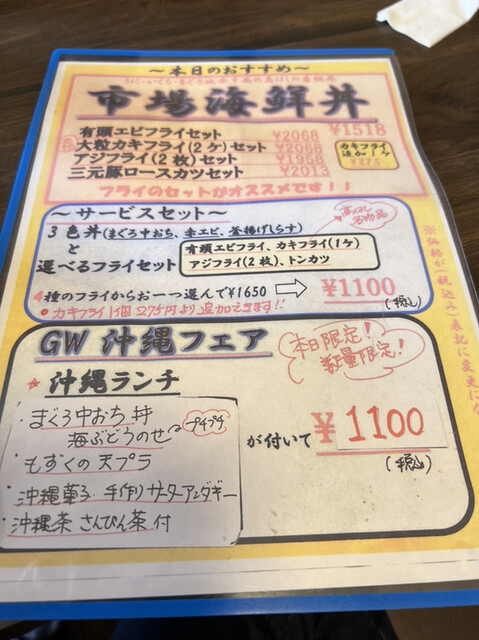 ～本日のおすすめ～
市場海鮮丼
¥1518
有頭エビフライセット ¥2068
大粒カキフライ(2ケ)セット ¥2068
アジフライ(2枚)セット ¥1958
三元豚ロースカツセット ¥2013
カキフライ
追加1ケ
¥275
フライのセットがオススメです!!
～サービスセット～
3色丼(まぐろ中おち、赤エビ、釜揚げしらす)
と
選べるフライセット
有頭エビフライ、カキフライ(1ケ)
アジフライ(2枚)、トンカツ
4種のフライからお一つ選んで¥1650
¥1100
(税込)
・カキフライ1個275円より追加できます!!
※価格が(税込み)表記に変更にな
GW 沖縄フェア
本日限定!
数量限定!
沖縄ランチ
・まぐろ中おち丼
海ぶどうのせ
プチプチ
・もずくの天プラ
・沖縄菓子・手作りサーターアンダギー
・沖縄茶 さんぴん茶付
が付いて
¥1100
(税込)